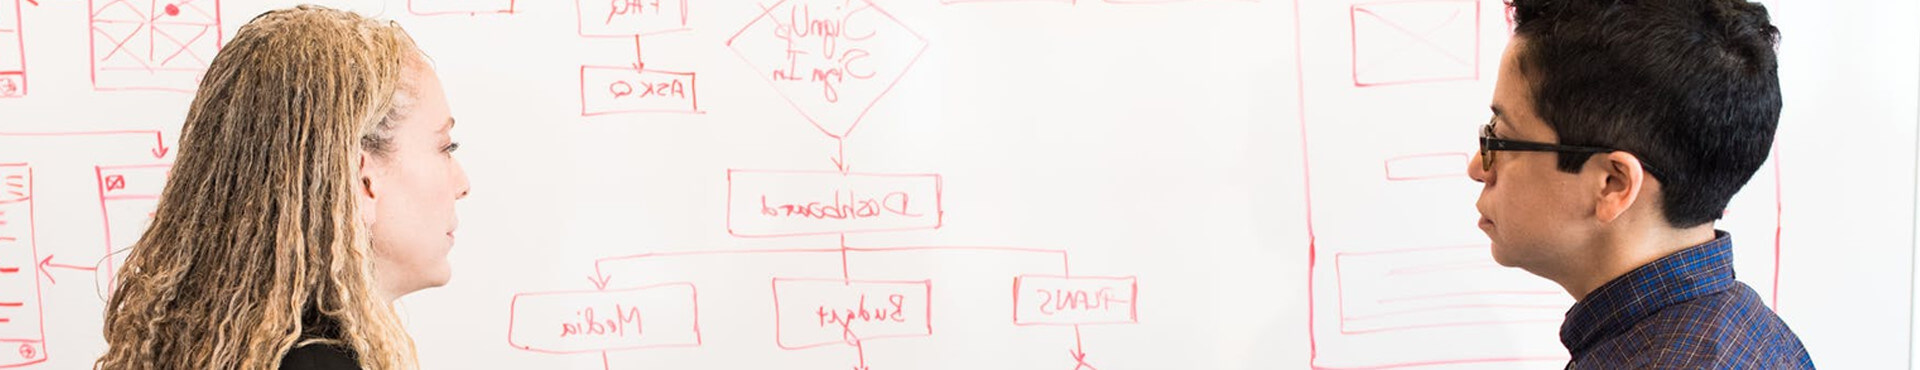 FAQ
ASK Q
SignUp
Sign In
Dashboard
Media
Budget
PLANS